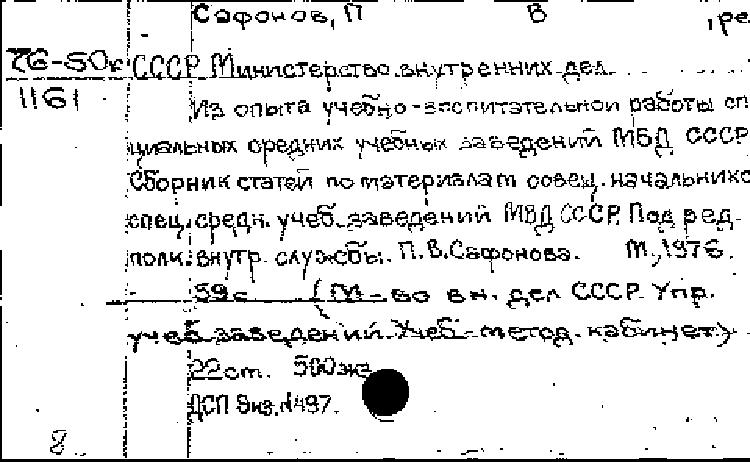 Сафонов, П В , ре
76-50к СССР Министерство внутренних дел.
1161 Из опыта учебно-воспитательной работы спе
циальных средних учебных заведений МВД СССР
Сборник статей по материалам совещ. начальнико
спец. средн. учеб. заведений МВД СССР. Под ред.
полк. внутр. службы. П.В.Сафонова. М., 1976.
59с (М-во вн. дел СССР. Упр.
учеб. заведений. Учеб.-метод. кабинет)
22см. 500экз
ДСП Экз.№497.
8